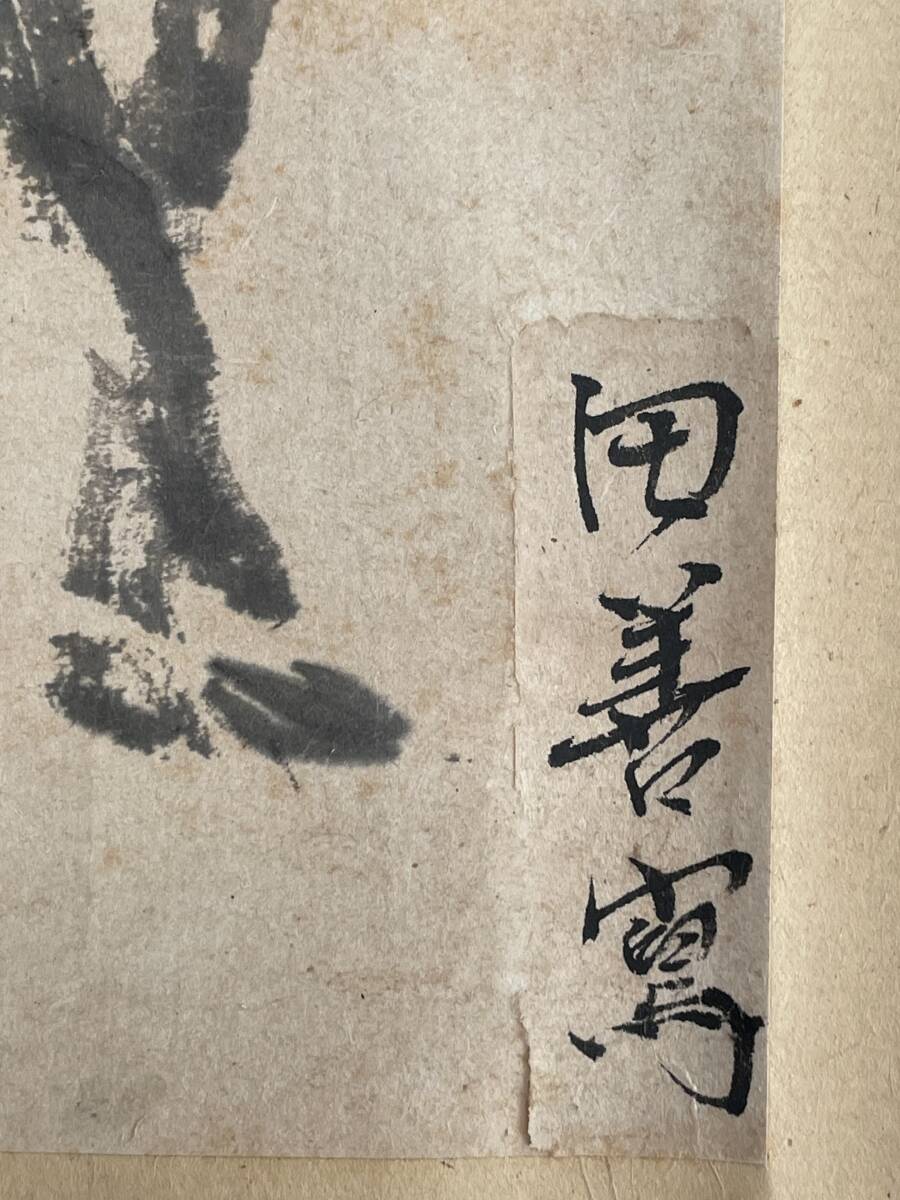 田善寫